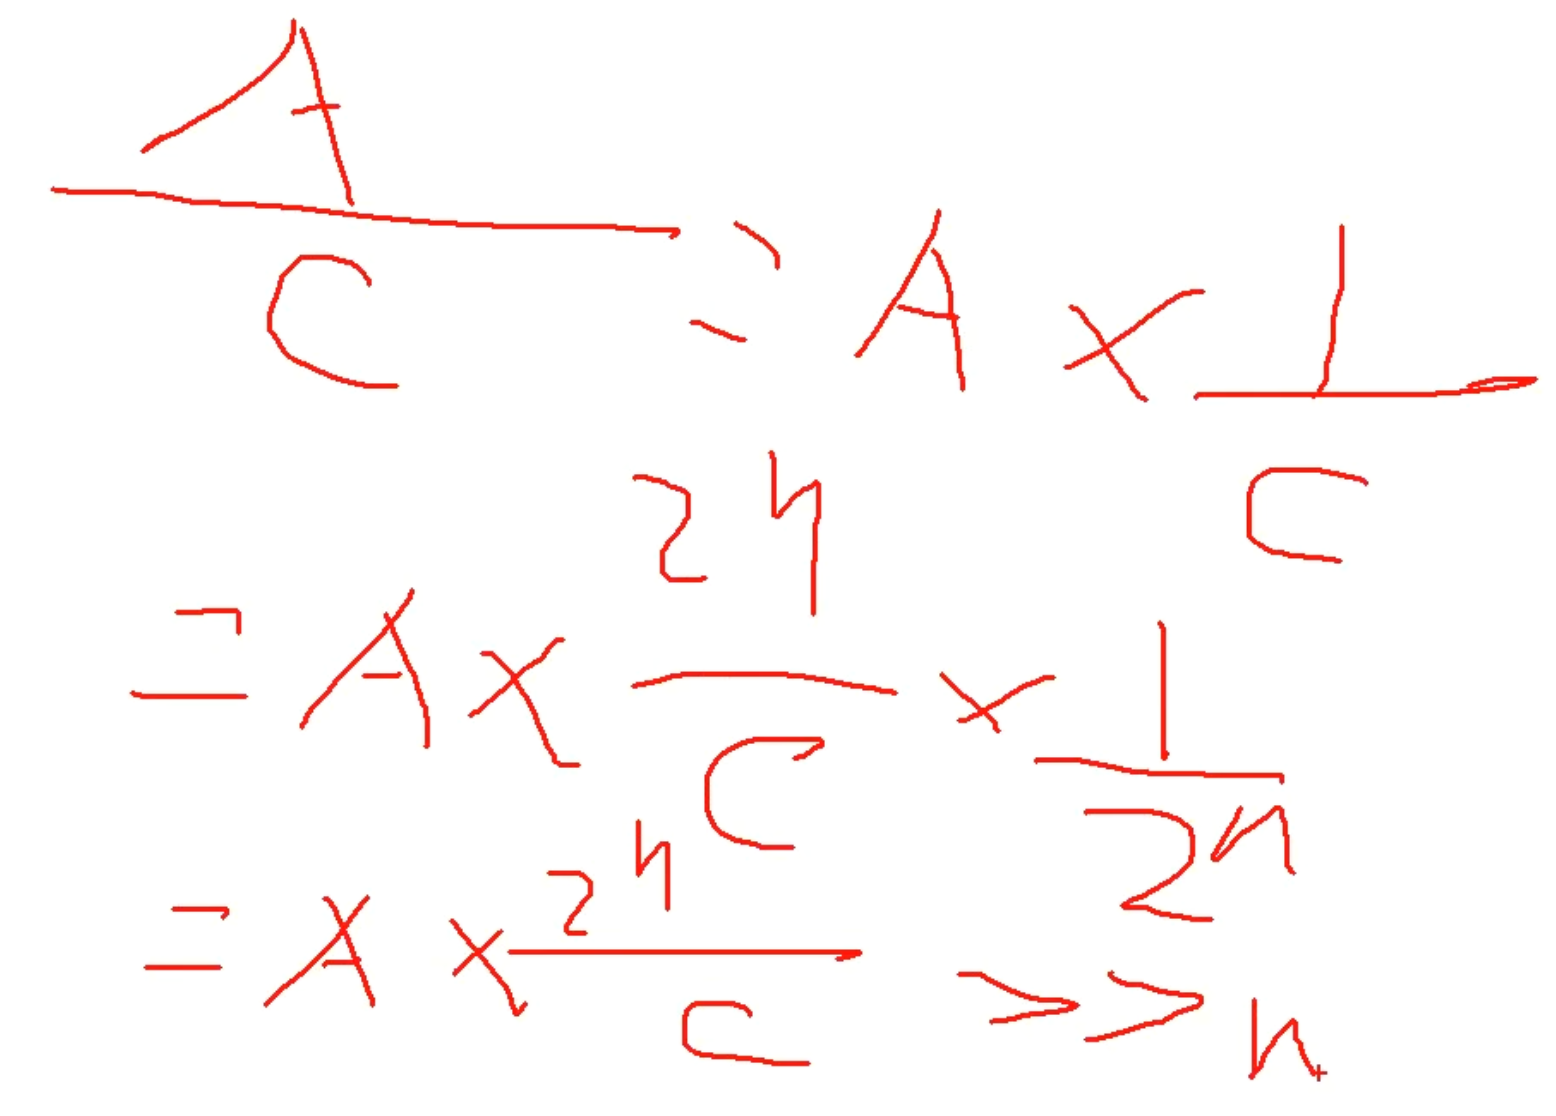 A/C = A × 1/C
= A × 2^n/C × 1/2^n
= A × 2^n/C >> n